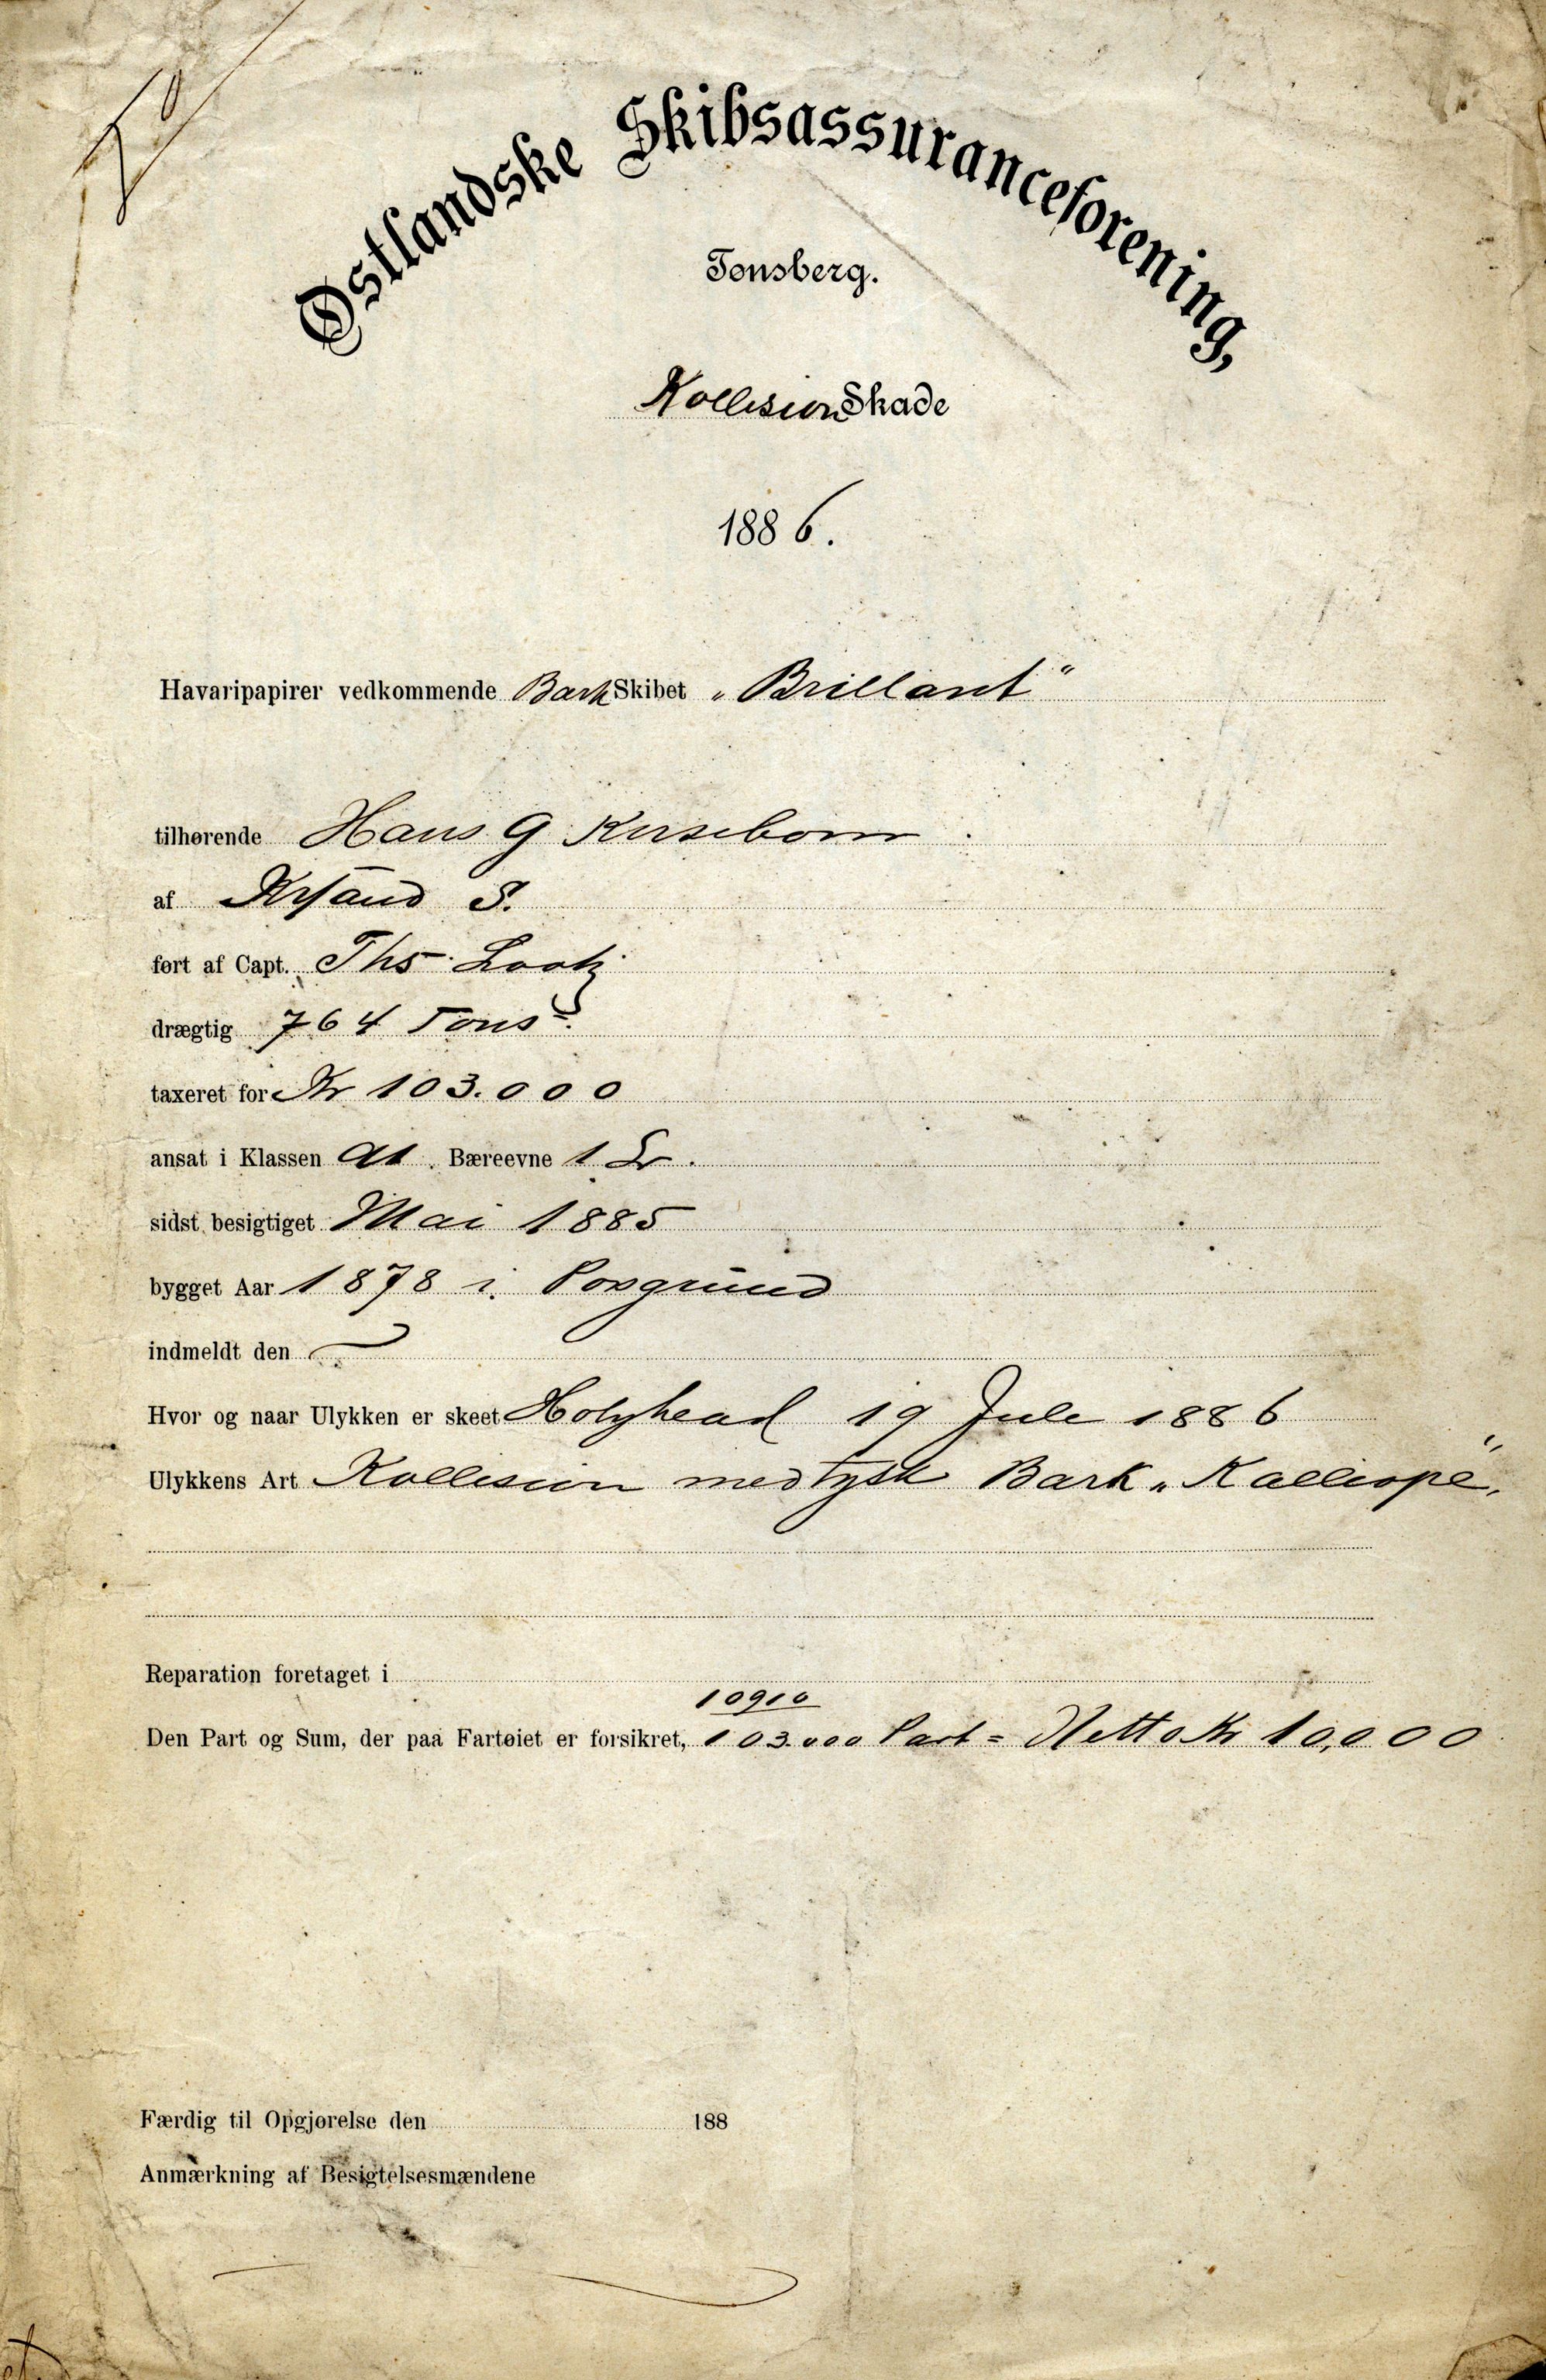 Østlandske Skibsassuranceforening,
Tønsberg.
Kollision Skade
1886.
Havaripapirer vedkommende Bark Skibet „Brillant“
tilhørende Hans G Kirsebom
af Krsand S.
ført af Capt. Ths. Lootz
drægtig 764 Tons.
taxeret for Kr 103.000
ansat i Klassen A1. Bæreevne 1 Lr.
sidst besigtiget Mai 1885
bygget Aar 1878 i Porsgrund
indmeldt den
Hvor og naar Ulykken er skeet Holyhead 19 Juli 1886
Ulykkens Art Kollision med tysk Bark „Kalliope“.
Reparation foretaget i
10910
Den Part og Sum, der paa Fartøiet er forsikret, 103.000 Part = Netto Kr 10,000
Færdig til Opgjørelse den 188
Anmærkning af Besigtelsesmændene